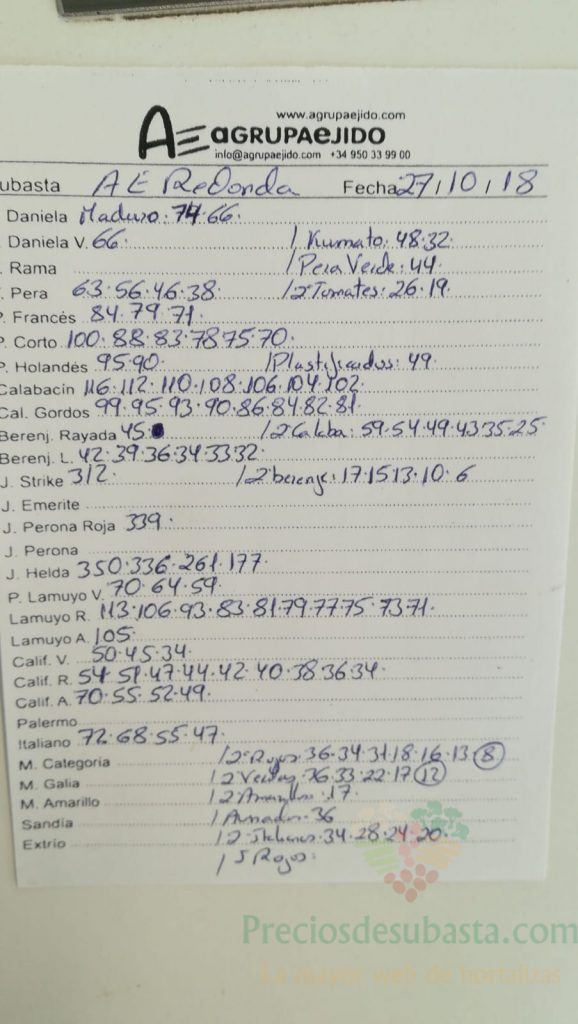 www.agrupaejido.com
AGRUPAEJIDO
info@agrupaejido.com +34 950 33 99 00
ubasta AE Redonda Fecha 27/10/18
Daniela Maduro: 74·66·
Daniela V. 66· / Kumato: 48·32·
Rama / Pera Verde: 44
Pera 63·56·46·38 / 2ª Tomates: 26·19·
P. Francés 84·79·71·
P. Corto 100·88·83·78·75·70·
P. Holandés 95·90· / Plastificados: 49·
Calabacín 116·112·110·108·106·104·102
Cal. Gordos 99·95·93·90·86·84·82·81·
Berenj. Rayada 45· / 2ª Calaba: 59·54·49·43·35·25·
Berenj. L. 42·39·36·34·33·32·
J. Strike 312· / 2ª berenje: 17·15·13·10·6
J. Emerite
J. Perona Roja 339·
J. Perona
J. Helda 350·336·261·177·
P. Lamuyo V. 70·64·59·
Lamuyo R. 113·106·93·83·81·79·77·75·73·71·
Lamuyo A. 105·
Calif. V. 50·45·34·
Calif. R. 54·51·47·44·42·40·38·36·34·
Calif. A. 70·55·52·49·
Palermo
Italiano 72·68·55·47·
M. Categoria / 2ª Rojos 36·34·31·18·16·13 (8)
M. Galia / 2 Verdes 36·33·22·17 (12)
M. Amarillo / 2 Amarillos 17·
Sandía / Asados 36
Extrío / 2 Italianos 34·28·24·20·
/ J Rojos:
Preciosdesubasta.com
La mayor web de hortalizas